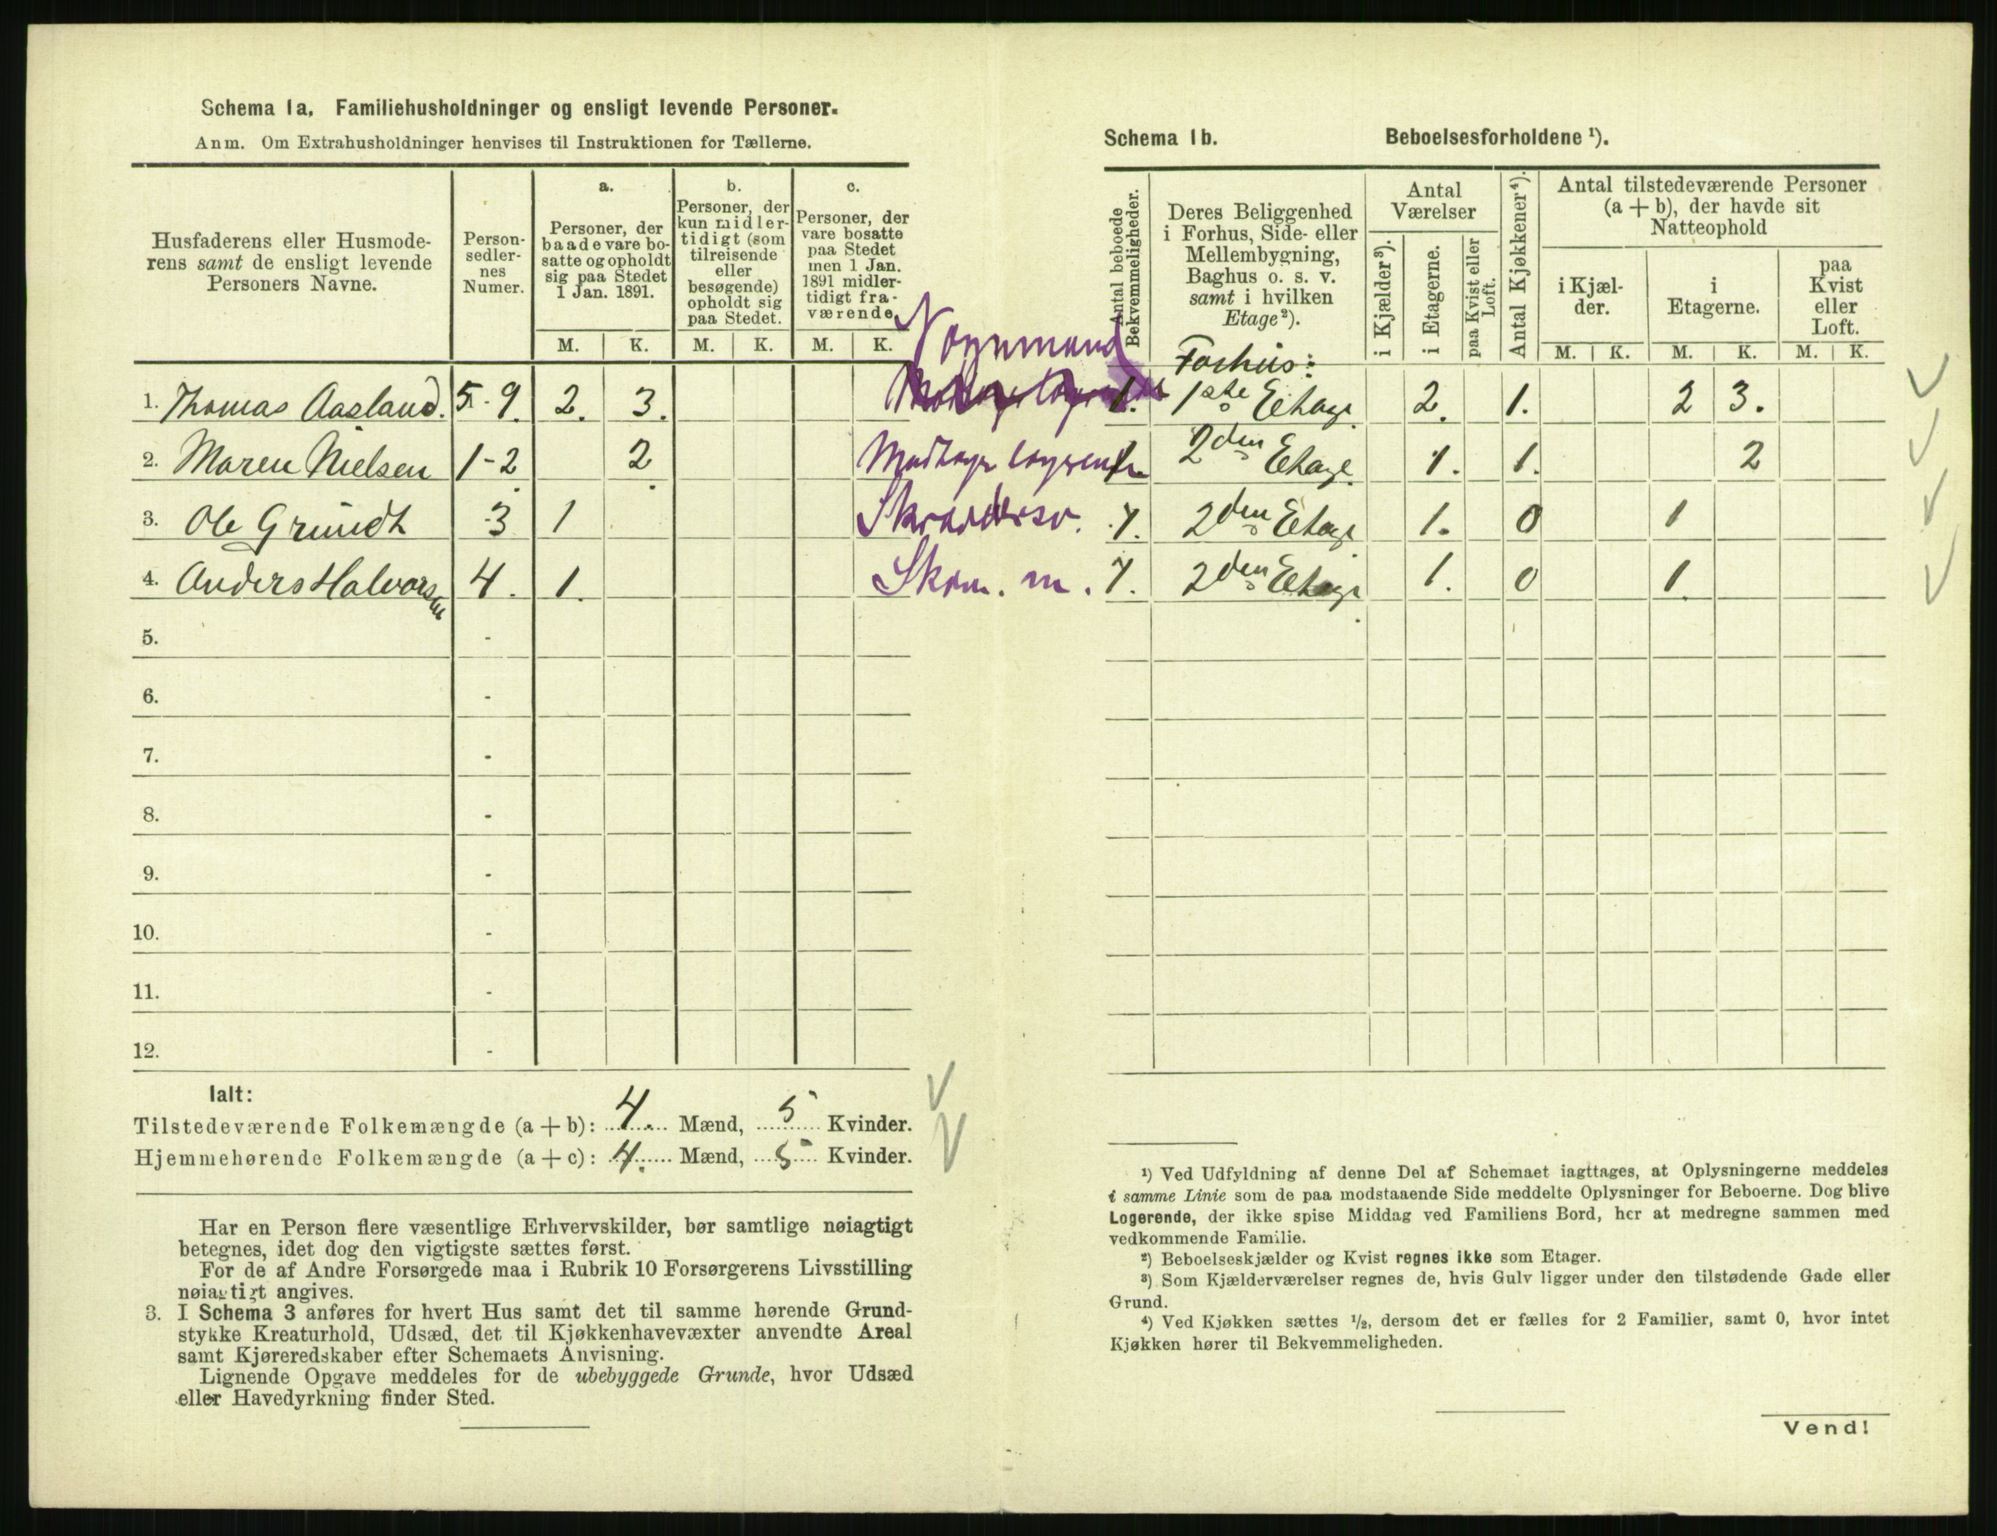 Schema 1a. Familiehusholdninger og ensligt levende Personer.
Anm. Om Extrahusholdninger henvises til Instruktionen for Tællerne.
Husfaderens eller Husmode-
rens samt de ensligt levende
Personers Navne.
Person-
sedler-
nes
Numer.
a.
Personer, der
baade vare bo-
satte og opholdt
sig paa Stedet
1 Jan. 1891.
b.
Personer, der
kun midler-
tidigt (som
tilreisende
eller
besøgende)
opholdt sig
paa Stedet.
c.
Personer, der
vare bosatte
paa Stedet
men 1 Jan.
1891 midler-
tidigt fra-
værende.
M. K. M. K. M. K.
1. Thomas Aasland. 5-9. 2. 3. Vognmand
2. Maren Nielsen 1-2. 2.
3. Ole Gründt 3 1
4. Anders Halvorsen 4. 1. Skom. m.
5. -
6. -
7. -
8. -
9. -
10. -
11. -
12. -
Ialt:
Tilstedeværende Folkemængde (a + b): 4. Mænd, 5 Kvinder.
Hjemmehørende Folkemængde (a + c): 4. Mænd, 5 Kvinder.
Har en Person flere væsentlige Erhvervskilder, bør samtlige nøiagtigt
betegnes, idet dog den vigtigste sættes først.
For de af Andre Forsørgede maa i Rubrik 10 Forsørgerens Livsstilling
nøiagtigt angives.
3. I Schema 3 anføres for hvert Hus samt det til samme hørende Grund-
stykke Kreaturhold, Udsæd, det til Kjøkkenhavevæxter anvendte Areal
samt Kjøreredskaber efter Schemaets Anvisning.
Lignende Opgave meddeles for de ubebyggede Grunde, hvor Udsæd
eller Havedyrkning finder Sted.
Schema 1b. Beboelsesforholdene ¹).
Antal beboede
Bekvemmeligheder.
Deres Beliggenhed
i Forhus, Side- eller
Mellembygning,
Baghus o. s. v.
samt i hvilken
Etage²).
Antal
Værelser
i Kjælder³).
i Etagerne.
paa Kvist eller
Loft.
Antal Kjøkkener⁴).
Antal tilstedeværende Personer
(a + b), der havde sit
Natteophold
i Kjæl-
der.
i
Etagerne.
paa
Kvist
eller
Loft.
M. K. M. K. M. K.
Forhus:
1. 1ste Etage 2. 1. 2 3.
1. 2den Etage. 1. 1. 2
1. 2den Etage 1. 0 1
1. 2den Etage. 1. 0 1.
¹) Ved Udfyldning af denne Del af Schemaet iagttages, at Oplysningerne meddeles
i samme Linie som de paa modstaaende Side meddelte Oplysninger for Beboerne. Dog blive
Logerende, der ikke spise Middag ved Familiens Bord, her at medregne sammen med
vedkommende Familie.
²) Beboelseskjælder og Kvist regnes ikke som Etager.
³) Som Kjælderværelser regnes de, hvis Gulv ligger under den tilstødende Gade eller
Grund.
⁴) Ved Kjøkken sættes ½, dersom det er fælles for 2 Familier, samt 0, hvor intet
Kjøkken hører til Bekvemmeligheden.
Vend!